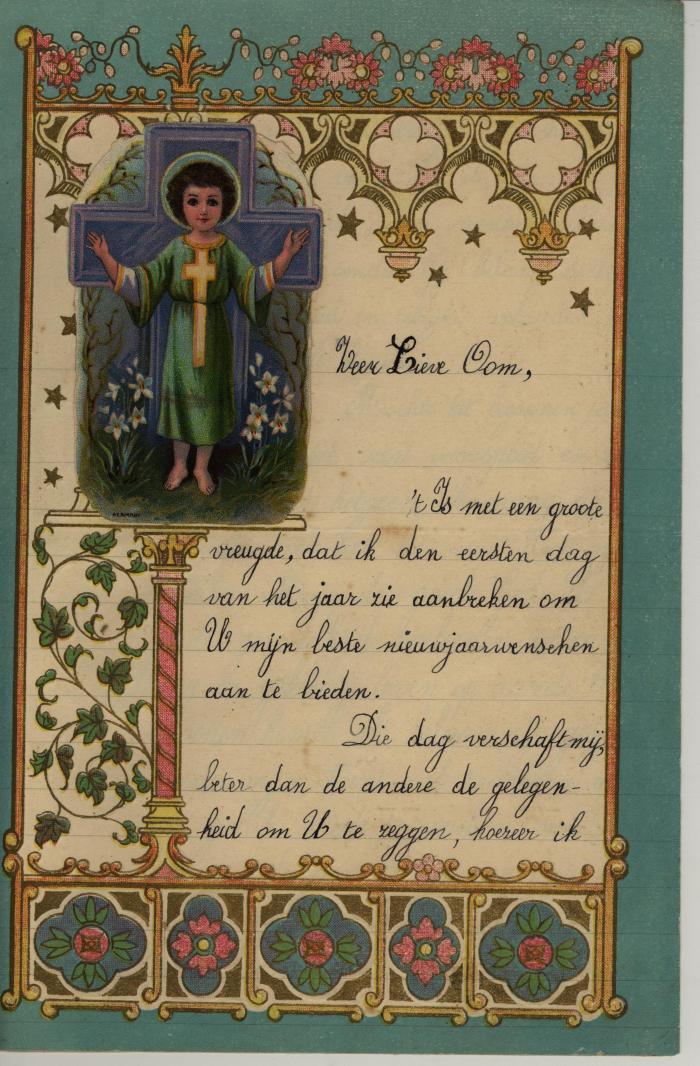 Zeer Lieve Oom,
't Is met een groote
vreugde, dat ik den eersten dag
van het jaar zie aanbreken om
U mijn beste nieuwjaarwenschen
aan te bieden.
Die dag verschaft mij,
beter dan de andere de gelegen-
heid om U te zeggen, hoezeer ik